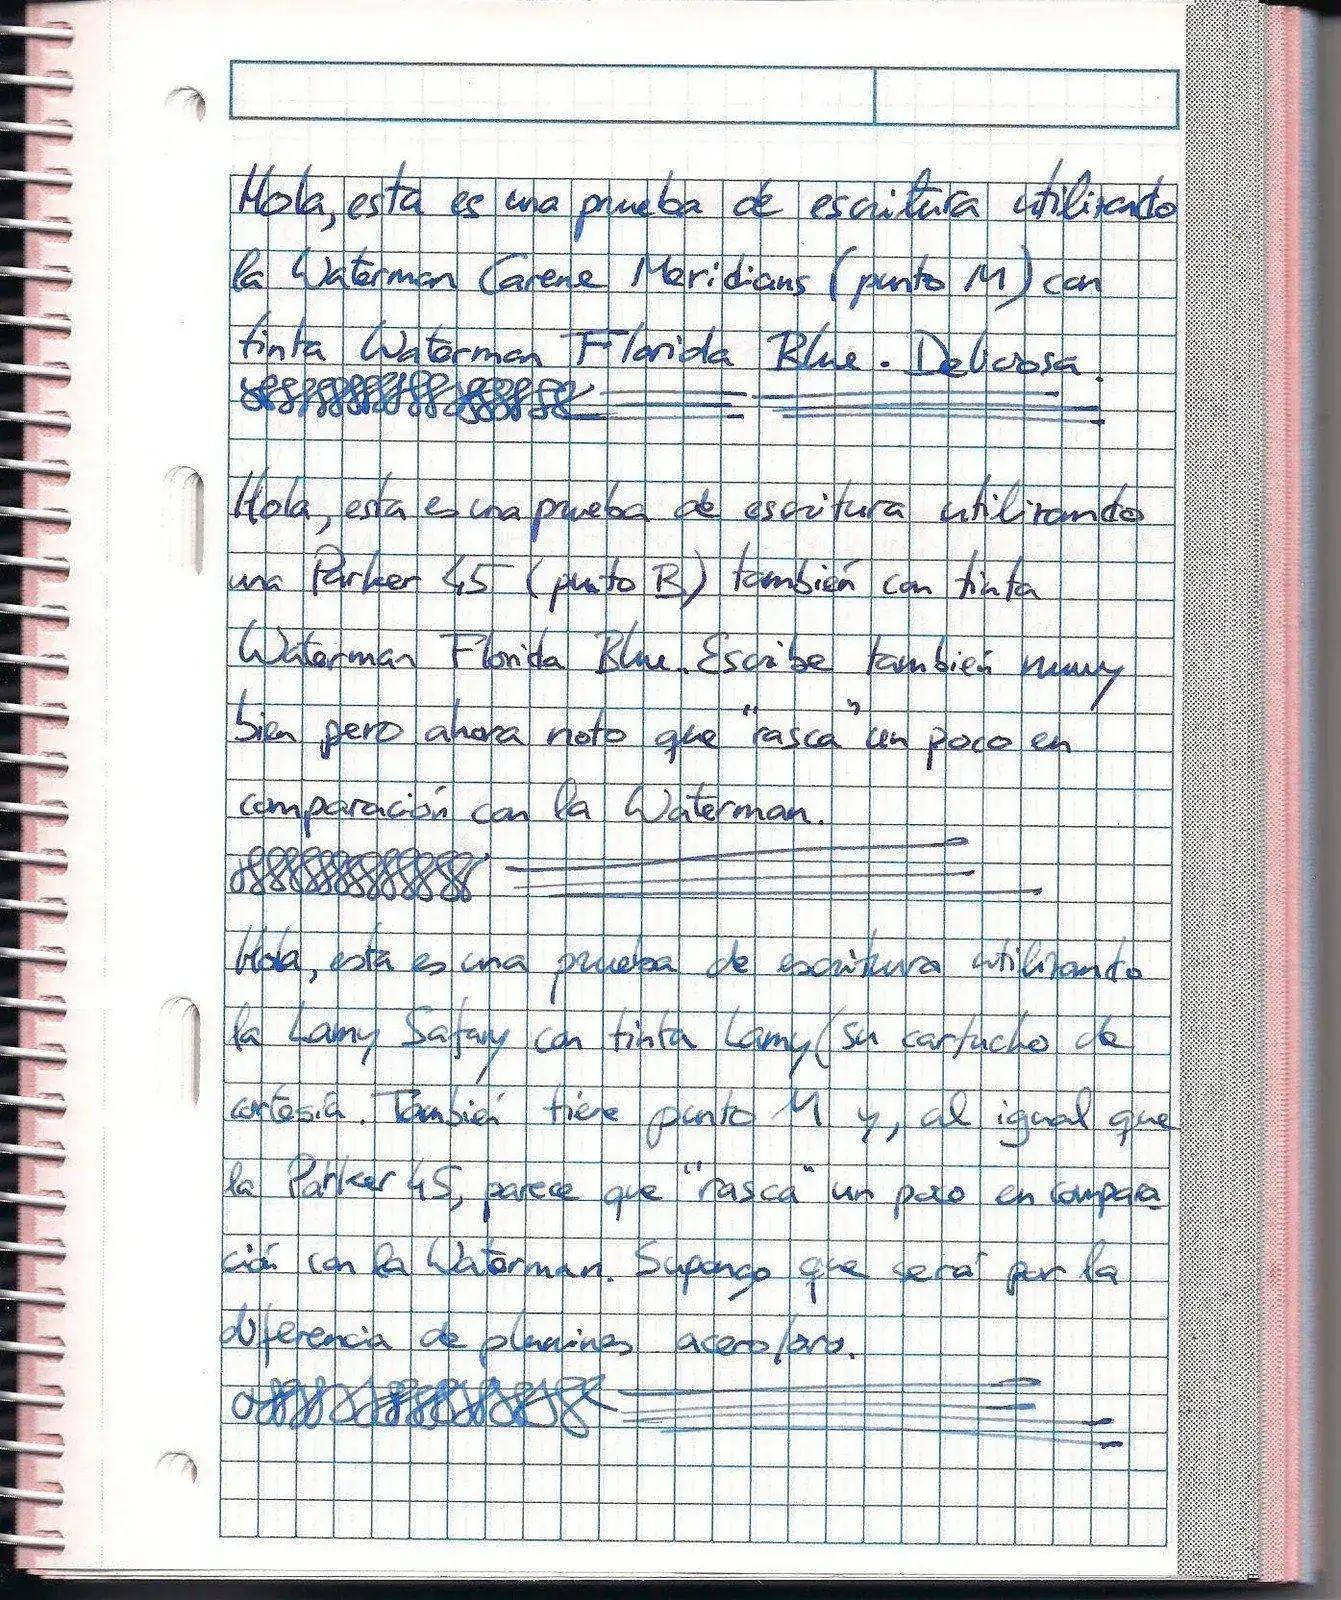 Hola, esta es una prueba de escritura utilizando
la Waterman Carene Meridians (punto M) con
tinta Waterman Florida Blue. Deliciosa.
Hola, esta es una prueba de escritura utilizando
una Parker 45 (punto B) también con tinta
Waterman Florida Blue. Escribe también muy
bien pero ahora noto que "rasca" un poco en
comparación con la Waterman.
Hola, esta es una prueba de escritura utilizando
la Lamy Safary con tinta Lamy (su cartucho de
cortesía. También tiene punto M y, al igual que
la Parker 45, parece que "rasca" un poco en compara
ción con la Waterman. Supongo que será por la
diferencia de plumines acero/oro.